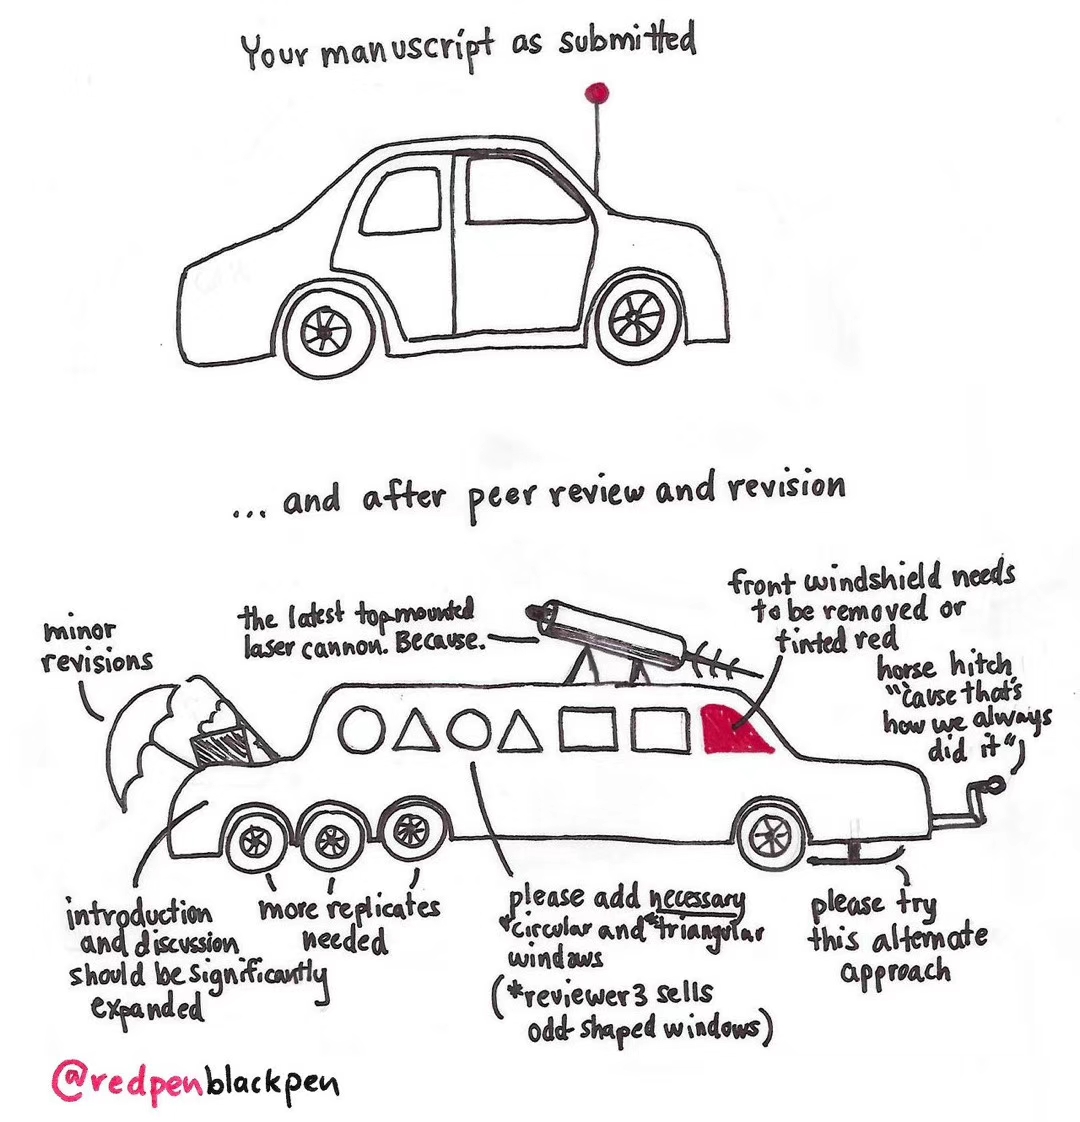 Your manuscript as submitted
... and after peer review and revision
minor
revisions
the latest top-mounted
laser cannon. Because.
front windshield needs
to be removed or
tinted red
horse hitch
"'cause that's
how we always
did it"
introduction
and discussion
should be significantly
expanded
more replicates
needed
please add necessary
*circular and *triangular
windows
(*reviewer 3 sells
odd-shaped windows)
please try
this alternate
approach
@redpenblackpen